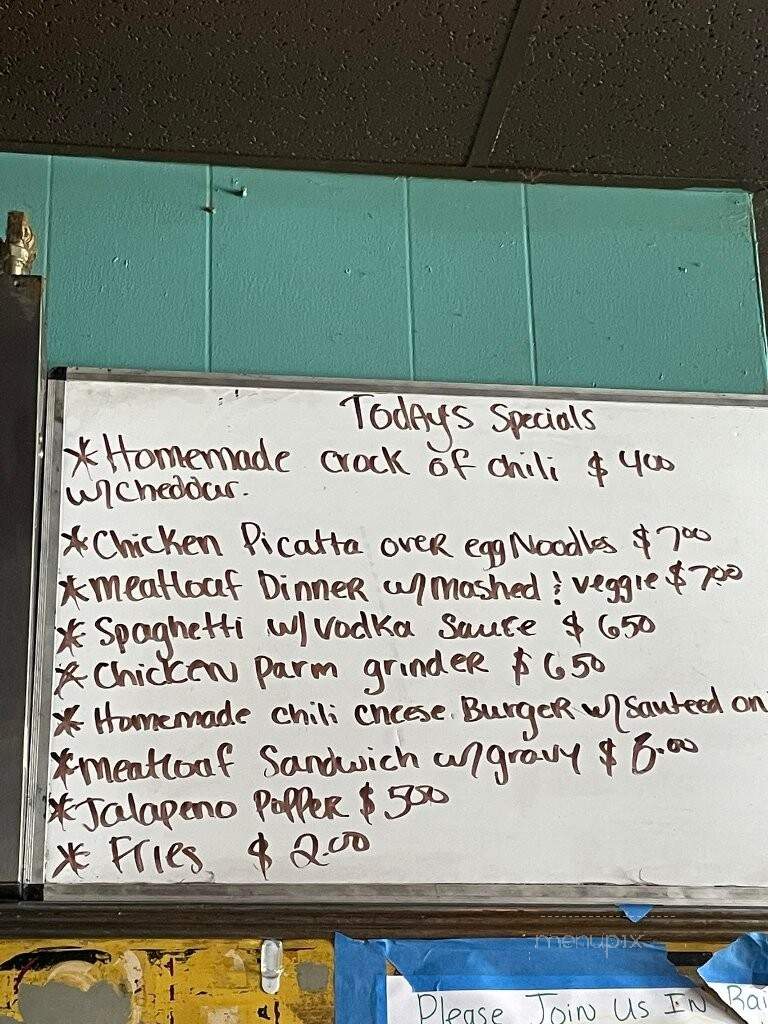 Today's Specials
* Homemade crock of chili $400
w/cheddar.
* Chicken Picatta over egg Noodles $700
* Meatloaf Dinner w/mashed & veggie $7.00
* Spaghetti w/ Vodka Sauce $650
* Chicken Parm grinder $650
* Homemade chili cheese Burger w/ Sauteed on
* Meatloaf Sandwich w/gravy $6.00
* Jalapeno Popper $500
* Fries $2.00
menupix
Please Join Us IN Rai